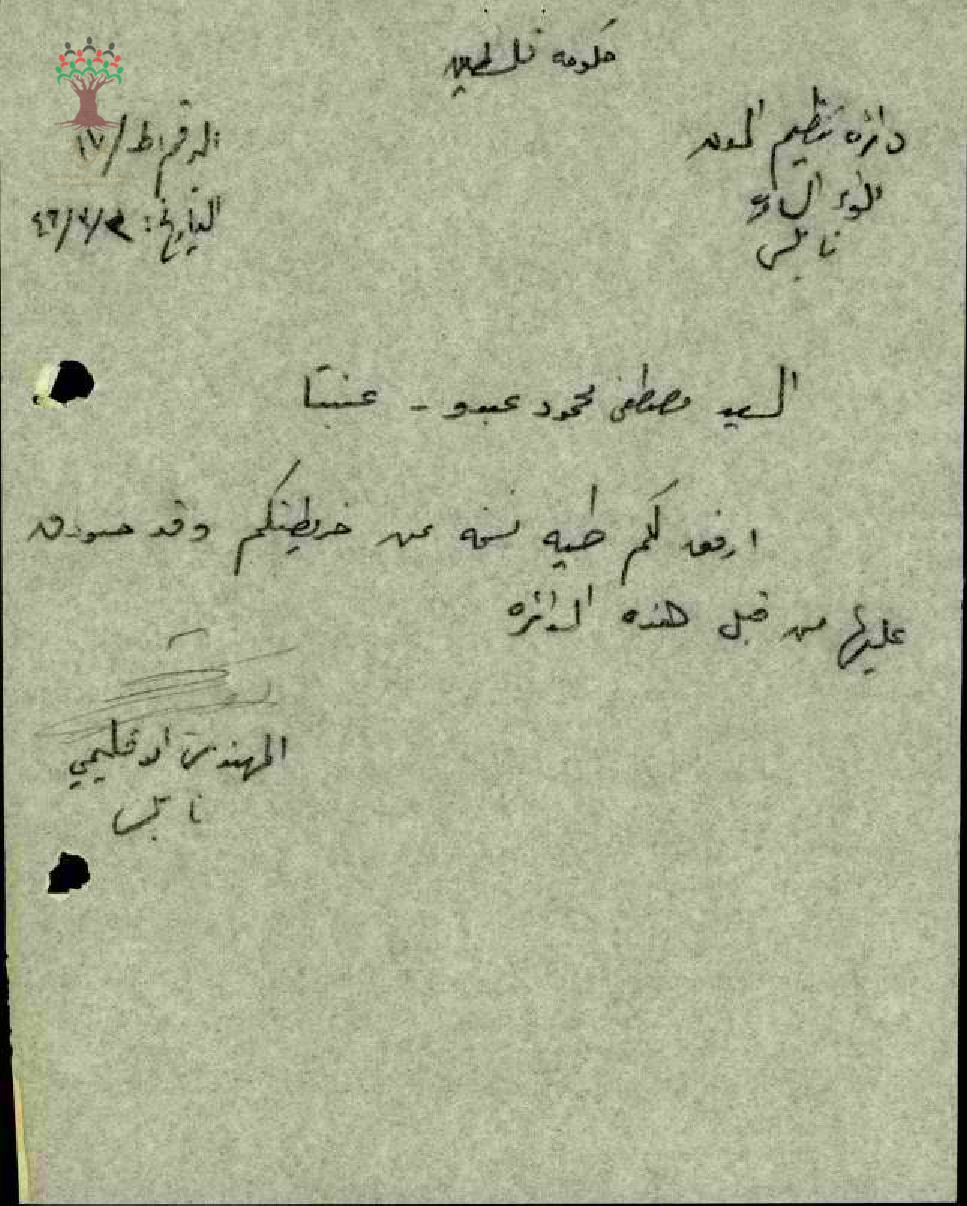 حكومة فلسطين
دائرة تنظيم المدن
اللواء السامري
نابلس
الرقم ط/١٧
التاريخ: ٤٦/٧/٢
السيد مصطفى محمود عبدو - عنبتا
ارفق لكم طيه نسخه عن خريطتكم وقد صودق
عليها من قبل هذه الدائره
المهندس الاقليمي
نابلس